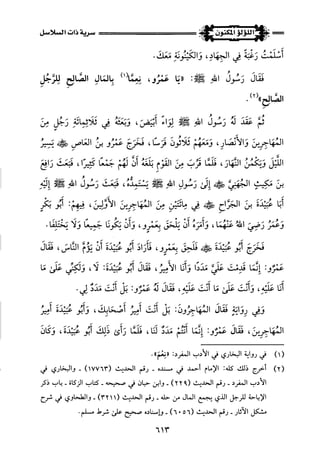 سرية ذات السلاسل
اللؤلؤ المكنون
أَسْلَمْتُ رَغْبَةً فِي الجِهَادِ، وَالكَيْنُونَةِ مَعَكَ.
فَقَالَ رَسُولُ اللهِ ﷺ: «يَا عَمْرُو، نَعِمَّا(١) بِالمَالِ الصَّالِحِ لِلرَّجُلِ
الصَّالِحِ»(٢).
ثُمَّ عَقَدَ لَهُ رَسُولُ اللهِ ﷺ لِوَاءً أَبْيَضَ، وَبَعَثَهُ فِي ثَلَاثِمِائَةِ رَجُلٍ مِنَ
المُهَاجِرِينَ وَالأَنْصَارِ، وَمَعَهُمْ ثَلَاثُونَ فَرَسًا، فَخَرَجَ عَمْرُو بنُ العَاصِ ﷺ يَسِيرُ
اللَّيْلَ وَيَكْمُنُ النَّهَارَ، فَلَمَّا قَرُبَ مِنَ القَوْمِ بَلَغَهُ أَنَّ لَهُمْ جَمْعًا كَثِيرًا، فَبَعَثَ رَافِعَ
بنَ مَكِيثٍ الجُهَنِيَّ إِلَى رَسُولِ اللهِ ﷺ يَسْتَمِدُّهُ، فَبَعَثَ رَسُولُ اللهِ ﷺ إِلَيْهِ
أَبَا عُبَيْدَةَ بنَ الجَرَّاحِ فِي مِائَتَيْنِ مِنَ المُهَاجِرِينَ الأَوَّلِينَ، فِيهِمْ: أَبُو بَكْرٍ
وَعُمَرُ رَضِيَ اللهُ عَنْهُمَا، وَأَمَرَهُ أَنْ يَلْحَقَ بِعَمْرٍو، وَأَنْ يَكُونَا جَمِيعًا وَلَا يَخْتَلِفَا.
فَخَرَجَ أَبُو عُبَيْدَةَ فَلَحِقَ بِعَمْرٍو، فَأَرَادَ أَبُو عُبَيْدَةَ أَنْ يَؤُمَّ النَّاسَ، فَقَالَ
عَمْرٌو: إِنَّمَا قَدِمْتَ عَلَيَّ مَدَدًا وَأَنَا الأَمِيرُ، فَقَالَ أَبُو عُبَيْدَةَ: لَا، وَلَكِنِّي عَلَى مَا
أَنَا عَلَيْهِ، وَأَنْتَ عَلَى مَا أَنْتَ عَلَيْهِ، فَقَالَ لَهُ عَمْرٌو: بَلْ أَنْتَ مَدَدٌ لِي.
وَفِي رِوَايَةٍ فَقَالَ المُهَاجِرُونَ: بَلْ أَنْتَ أَمِيرُ أَصْحَابِكَ، وَأَبُو عُبَيْدَةَ أَمِيرُ
المُهَاجِرِينَ، فَقَالَ عَمْرٌو: إِنَّمَا أَنْتُمْ مَدَدٌ لَنَا، فَلَمَّا رَأَى ذَلِكَ أَبُو عُبَيْدَةَ، وَكَانَ
(١) في رواية البخاري في الأدب المفرد: «نِعْمَ».
(٢) أخرج ذلك كله: الإمام أحمد في مسنده ـ رقم الحديث (١٧٧٦٣) ـ والبخاري في
الأدب المفرد ـ رقم الحديث (٢٢٩) ـ وابن حبان في صحيحه ـ كتاب الزكاة ـ باب ذكر
الإباحة للرجل الذي يجمع المال من حله ـ رقم الحديث (٣٢١١) ـ والطحاوي في شرح
مشكل الآثار ـ رقم الحديث (٦٠٥٦) ـ وإسناده صحيح على شرط مسلم.
٦١٣